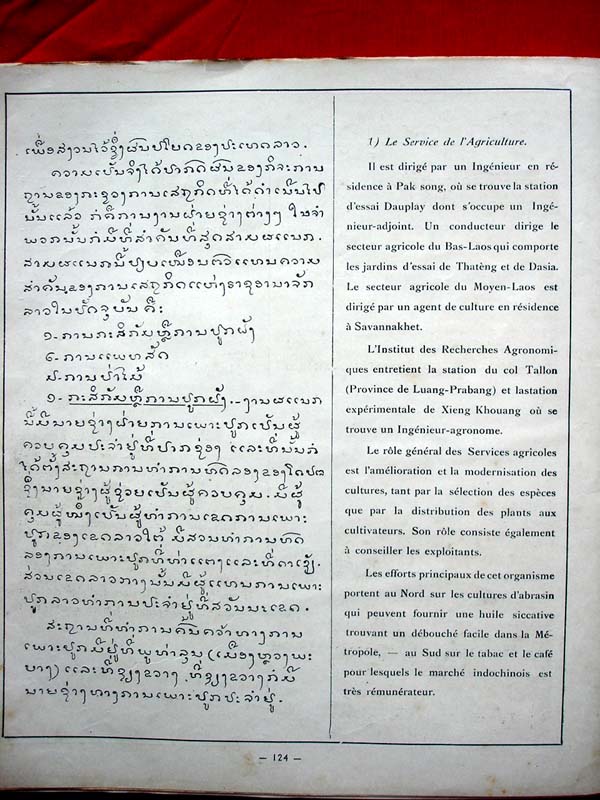 ເພື່ອສງວນໄວ້ຊຶ່ງຜົນປໂຍດຂອງປະເທດລາວ.
ຄວາມເປັນຈິງໄດ້ປາກົດຜົນຂອງກິຈະການ
ຖານຂອງກະຊວງການເສຖກິດທີ່ໄດ້ດຳເນີນໄປ
ນັ້ນແລ້ວ ກໍຄືການງານຝ່າຍຊ່າງຕ່າງໆ ໃນຈຳ
ພວກນັ້ນກໍມີທີ່ສຳຄັນທີ່ສຸດສາມຜແນກ.
ສາມຜແນກນີ້ປຽບເໝືອນຕົວແທນຄວາມ
ສຳຄັນຂອງການເສຖກິດແຫ່ງຣາຊອານາຈັກ
ລາວໃນປັດຈຸບັນ ຄື:
໑- ການກະສິກັມຫຼືການປູກຝັງ
໒- ການແພທສັດ
໓- ການປ່າໄມ້
໑- ກະສິກັມຫຼືການປູກຝັງ.- ງານຜແນກ
ນີ້ມີນາຍຊ່າງຝ່າຍການເພາະປູກເປັນຜູ້
ຄວບຄຸມປະຈຳຢູ່ທີ່ປາກຊ່ອງ ແລະທີ່ນັ້ນກໍ
ໄດ້ຕັ້ງສະຖານການທຳການທົດລອງຂອງ
ຊຶ່ງນາຍຊ່າງຜູ້ຊ່ວຍເປັນຜູ້ຄວບຄຸມ. ມີຜູ້
ຄຸມຜູ້ໜຶ່ງເປັນຜູ້ທຳການເຂດການເພາະ
ປູກຂອງເຂດລາວໃຕ້ ມີສວນທຳການທົດ
ລອງການເພາະປູກທີ່ທ່າແຕງແລະທີ່
ສ່ວນເຂດລາວກາງນັ້ນມີຜູ້ແທນການເພາະ
ປູກລາວທຳການປະຈຳຢູ່ທີ່ສວັນນະເຂດ.
ສະຖານທີ່ທຳການຄົ້ນຄວ້າທາງການ
ເພາະປູກມີຢູ່ທີ່ພູທ່າລຸນ (ເມືອງຫຼວງພະ
ບາງ) ແລະທີ່ຊຽງຂວາງ. ທີ່ຊຽງຂວາງກໍມີ
ນາຍຊ່າງທາງການເພາະປູກປະຈຳຢູ່.
1) Le Service de l'Agriculture.
Il est dirigé par un Ingénieur en ré-
sidence à Pak song, où se trouve la station
d'essai Dauplay dont s'occupe un Ingé-
nieur-adjoint. Un conducteur dirige le
secteur agricole du Bas-Laos qui comporte
les jardins d'essai de Thatèng et de Dasia.
Le secteur agricole du Moyen-Laos est
dirigé par un agent de culture en résidence
à Savannakhet.
L'Institut des Recherches Agronomi-
ques entretient la station du col Tallon
(Province de Luang-Prabang) et lastation
expérimentale de Xieng Khouang où se
trouve un Ingénieur-agronome.
Le rôle général des Services agricoles
est l'amélioration et la modernisation des
cultures, tant par la sélection des espèces
que par la distribution des plants aux
cultivateurs. Son rôle consiste également
à conseiller les exploitants.
Les efforts principaux de cet organisme
portent au Nord sur les cultures d'abrasin
qui peuvent fournir une huile siccative
trouvant un débouché facile dans la Mé-
tropole, — au Sud sur le tabac et le café
pour lesquels le marché indochinois est
très rémunérateur.
— 124 —